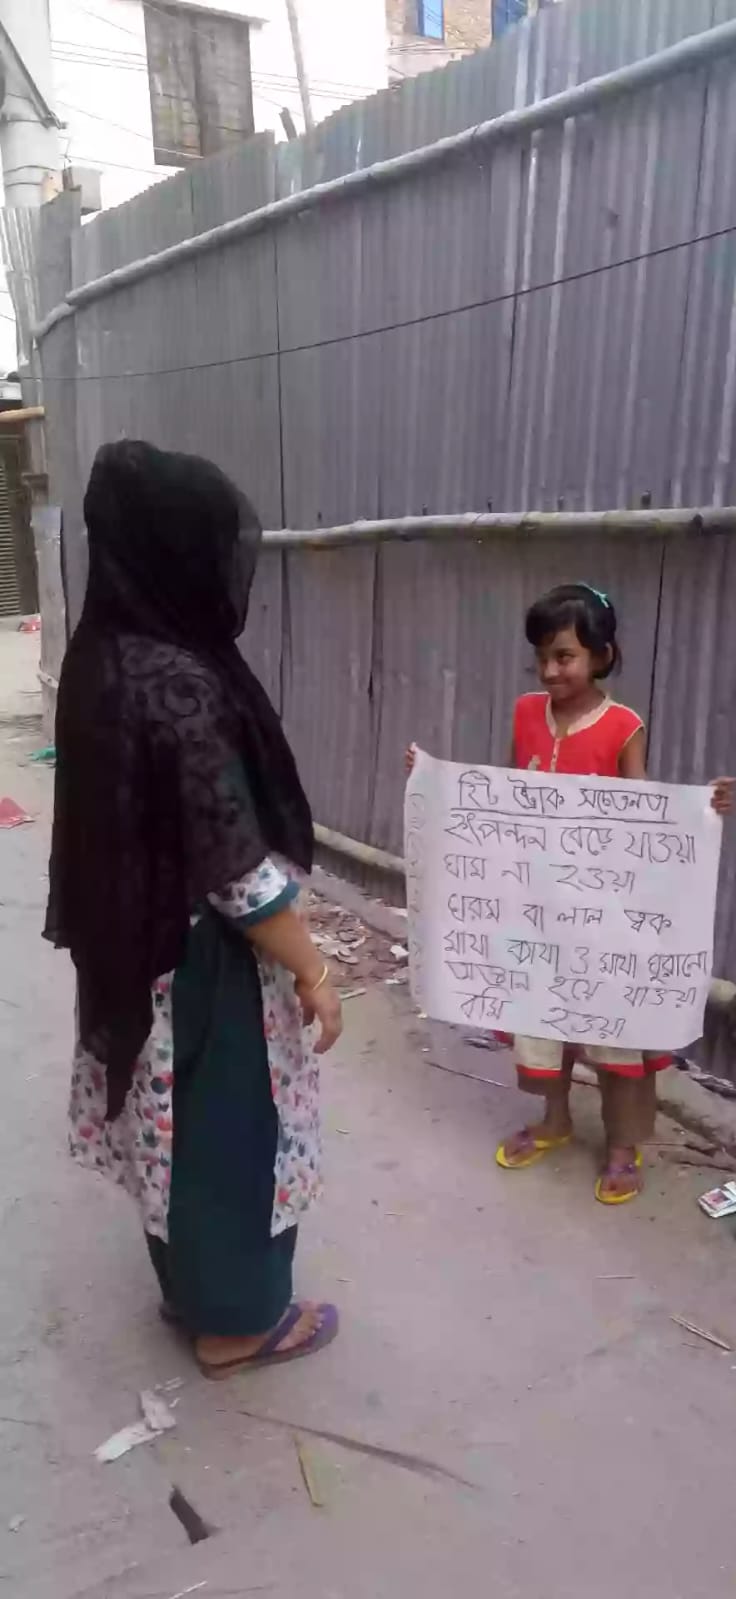 হিট স্ট্রোক সচেতনতা
হৃৎস্পন্দন বেড়ে যাওয়া
ঘাম না হওয়া
গরম বা লাল ত্বক
মাথা ব্যথা ও মাথা ঘুরানো
অজ্ঞান হয়ে যাওয়া
বমি হওয়া